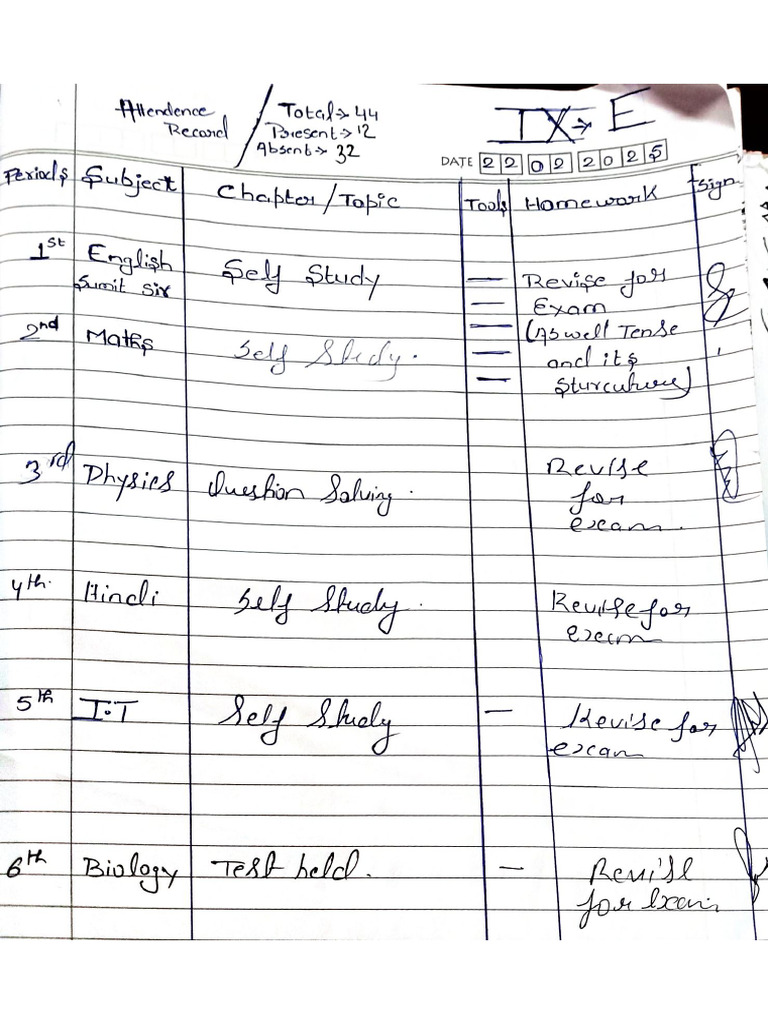 Attendence Record
Total → 44
Present → 12
Absent → 32
IX → E
DATE 22 02 2025
Periods Subject Chapter/Topic Tools Homework Sign
1st English Sumit Sir Self Study — Revise for Exam (As well Tense and its Sturcuture)
2nd Maths Self Study.
3rd Physics Question Solving. Revise for exam.
4th. Hindi Self Study. Revise for exam
5th I.T Self Study — Revise for exam
6th Biology Test held. — Revise for Exam